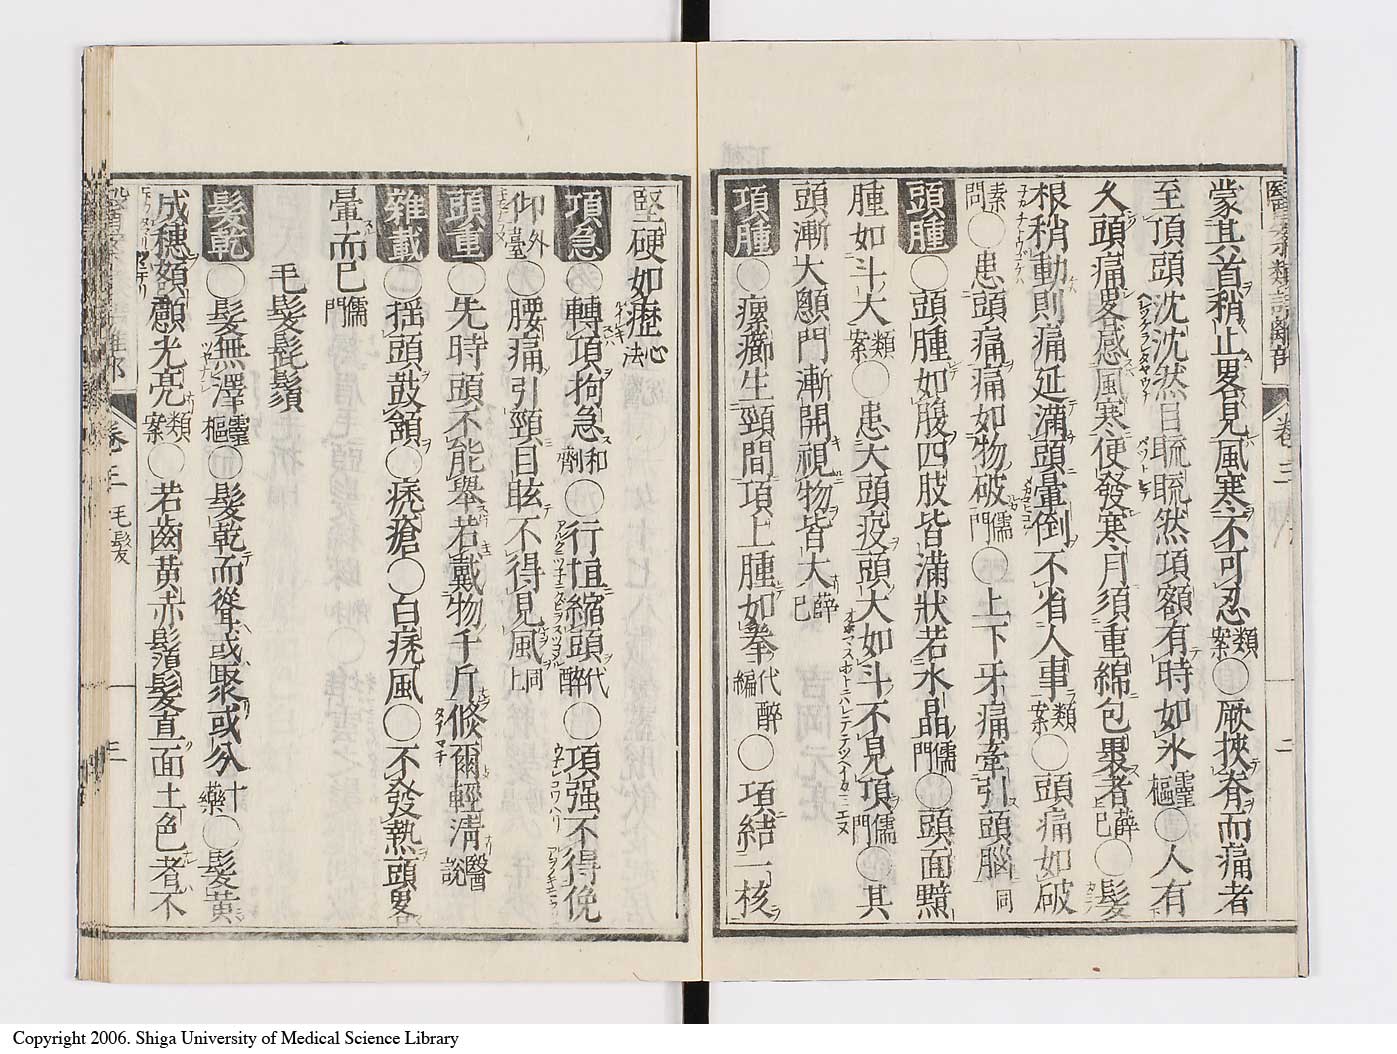 蒙其首稍止畧見風寒不可忍類案〇厥挾脊而痛者
至頂頭沈沈然目䀮䀮然項額有時如氷靈樞〇人有
久頭痛畧感風寒便發寒月須重綿包裹者薛己〇髮
根稍動則痛延滿頭暈倒不省人事類案〇頭痛如破
素問〇患頭痛痛如物破儒門〇上下牙痛牽引頭腦同
頭腫〇頭腫如腹四肢皆滿狀若水晶儒門〇頭面黯
腫如斗大類案〇患大頭疫頭大如斗不見頂儒門〇其
頭漸大顖門漸開視物皆大薛己
項腫〇瘰癧生頸間項上腫如拳代醉編〇項結二核
堅硬如瀝心法
項急〇轉項拘急和劑〇行恒縮頭代醉〇項强不得俛
仰外臺〇腰痛引頸目䀮不得見風同上
頭重〇先時頭不能擧若戴物千斤倐爾輕淸醫說
雜載〇揺頭鼓頷〇疣瘡〇白疣風〇不發熱頭畧
暈而已儒門
毛髮髭鬚
髮乾〇髮無澤靈樞〇髮乾而聳或聚或分十藥〇髮黃
成穗額顱光亮類案〇若齒黃赤鬚髮直面土色者不
卷三 毛髮 三
Copyright 2006. Shiga University of Medical Science Library